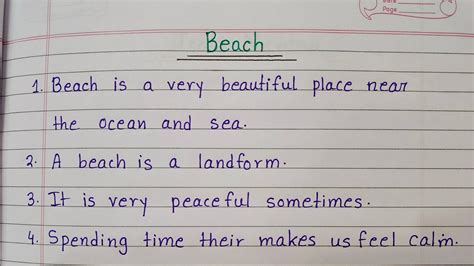 Date
Page
Beach
1. Beach is a very beautiful place near
the ocean and sea.
2. A beach is a landform.
3. It is very peaceful sometimes.
4. Spending time their makes us feel calm.